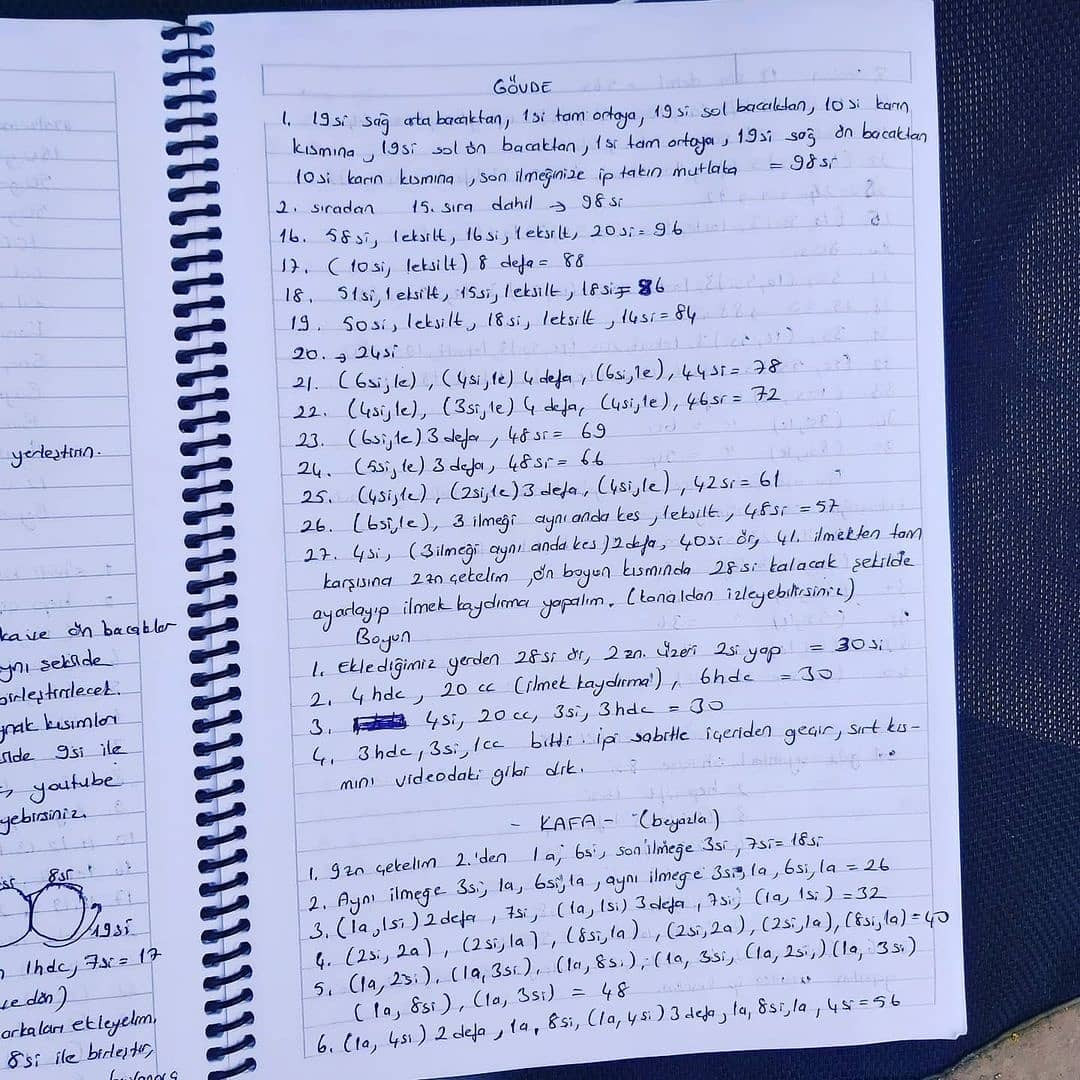 yerleştirin.
ka ve ön bacaklar
ynı şekilde
birleştirilecek.
ynak kısımları
9si ile
youtube
yebirsiniz.
8si
19si
1hdc, 7si = 17
ce dön)
arkaları ekleyelim,
8si ile birleştir,
GÖVDE
1. 19si sağ arta bacaktan, 1si tam ortaya, 19si sol bacaktan, 10si karın
kısmına, 19si sol ön bacaktan, 1si tam ortaya, 19si sağ ön bacaktan
10si karın kısmına, son ilmeğinize ip takın mutlaka = 98si
2. sıradan 15. sıra dahil → 98si
16. 58si, 1eksilt, 16si, 1eksilt, 20si = 96
17. (10si, 1eksilt) 8 defa = 88
18. 51si, 1eksilt, 15si, 1eksilt, 18si = 86
19. 50si, 1eksilt, 18si, 1eksilt, 14si = 84
20. → 24si
21. (6si, 1e), (4si, 1e) 4 defa, (6si, 1e), 44si = 78
22. (4si, 1e), (3si, 1e) 4 defa, (4si, 1e), 46si = 72
23. (6si, 1e) 3 defa, 48si = 69
24. (5si, 1e) 3 defa, 48si = 66
25. (4si, 1e), (2si, 1e) 3 defa, (4si, 1e), 42si = 61
26. (6si, 1e), 3 ilmeği aynı anda kes, 1eksilt, 48si = 57
27. 4si, (3 ilmeği aynı anda kes) 2defa, 40si ör, 41. ilmekten tam
karşısına 2zn çekelim, ön boyun kısmında 28si kalacak şekilde
ayarlayıp ilmek kaydırma yapalım. (kanaldan izleyebilirsiniz)
Boyun
1. Eklediğimiz yerden 28si ör, 2 zn. üzeri 2si yap = 30si
2. 4hdc, 20cc (ilmek kaydırma), 6hdc = 30
3. 4si, 20cc, 3si, 3hdc = 30
4. 3hdc, 3si, 1cc bitti. ipi sabitle içeriden geçir, sırt kıs-
mını videodaki gibi dik.
- KAFA - (beyazla)
1. 9zn çekelim 2.'den 1a, 6si, son ilmeğe 3si, 7si = 18si
2. Aynı ilmeğe 3si, 1a, 6si, 1a, aynı ilmeğe 3si, 1a, 6si, 1a = 26
3. (1a, 1si) 2 defa, 7si, (1a, 1si) 3 defa, 7si, (1a, 1si) = 32
4. (2si, 2a), (2si, 1a), (8si, 1a), (2si, 2a), (2si, 1a), (8si, 1a) = 40
5. (1a, 2si), (1a, 3si), (1a, 8si), (1a, 3si, (1a, 2si,) (1a, 3si)
(1a, 8si), (1a, 3si) = 48
6. (1a, 4si) 2 defa, 1a, 8si, (1a, 4si) 3 defa, 1a, 8si, 1a, 4si = 56